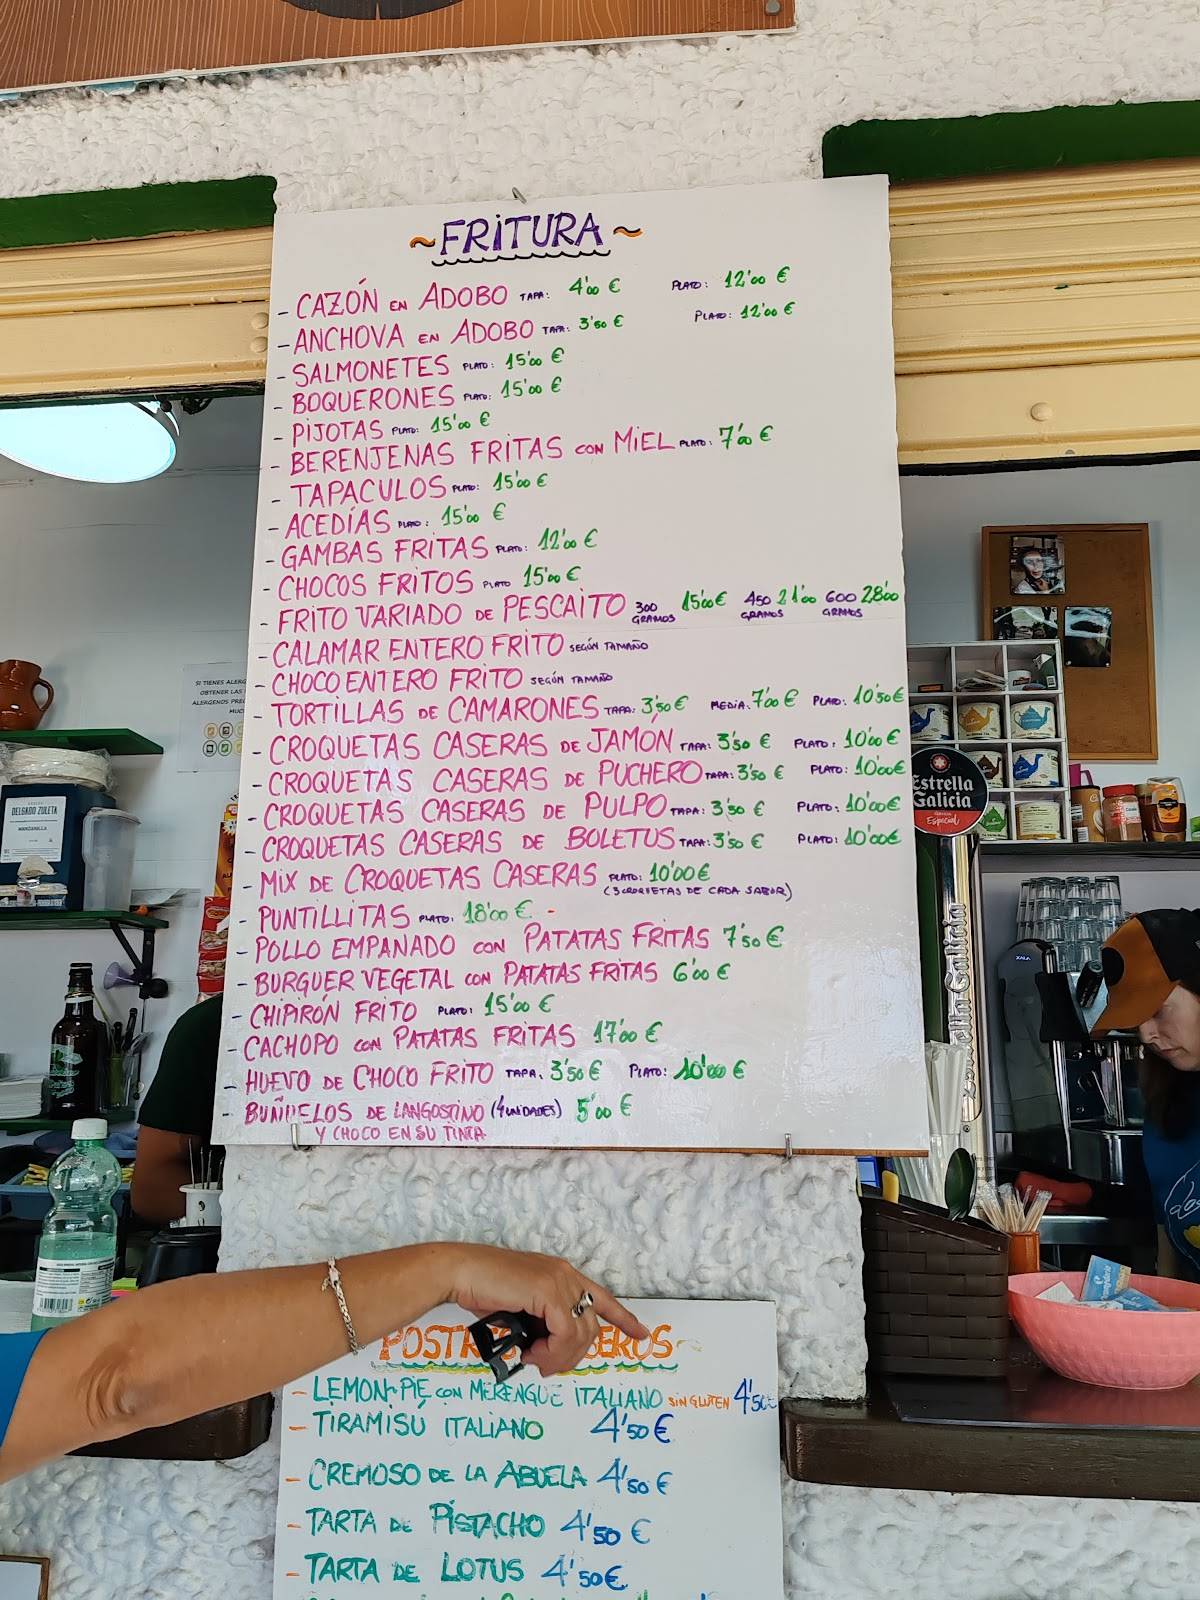 ~FRITURA~
- CAZÓN EN ADOBO TAPA: 4'00 € PLATO: 12'00 €
- ANCHOVA EN ADOBO TAPA: 3'50 € PLATO: 12'00 €
- SALMONETES PLATO: 15'00 €
- BOQUERONES PLATO: 15'00 €
- PIJOTAS PLATO: 15'00 €
- BERENJENAS FRITAS CON MIEL PLATO: 7'00 €
- TAPACULOS PLATO: 15'00 €
- ACEDÍAS PLATO: 15'00 €
- GAMBAS FRITAS PLATO: 12'00 €
- CHOCOS FRITOS PLATO 15'00 €
- FRITO VARIADO DE PESCAITO 300 GRAMOS 15'00€ 450 GRAMOS 21'00 600 GRAMOS 28'00
- CALAMAR ENTERO FRITO SEGÚN TAMAÑO
- CHOCO ENTERO FRITO SEGÚN TAMAÑO
- TORTILLAS DE CAMARONES TAPA: 3'50 € MEDIA: 7'00 € PLATO: 10'50€
- CROQUETAS CASERAS DE JAMÓN TAPA: 3'50 € PLATO: 10'00€
- CROQUETAS CASERAS DE PUCHERO TAPA: 3'50 € PLATO: 10'00€
- CROQUETAS CASERAS DE PULPO TAPA: 3'50 € PLATO: 10'00€
- CROQUETAS CASERAS DE BOLETUS TAPA: 3'50 € PLATO: 10'00€
- MIX DE CROQUETAS CASERAS PLATO: 10'00€
(3 CROQUETAS DE CADA SABOR)
- PUNTILLITAS PLATO: 18'00 € -
- POLLO EMPANADO CON PATATAS FRITAS 7'50 €
- BURGUER VEGETAL CON PATATAS FRITAS 6'00 €
- CHIPIRÓN FRITO PLATO: 15'00 €
- CACHOPO CON PATATAS FRITAS 17'00 €
- HUEVO DE CHOCO FRITO TAPA. 3'50 € PLATO: 10'00 €
- BUÑUELOS DE LANGOSTINO (4 UNIDADES) 5'00 €
Y CHOCO EN SU TINTA
SI TIENES
OBTENER LAS
DELGADO ZULETA
MANZANILLA
Estrella
Galicia
Especial
Estrella Galicia
XALA
- LEMON PIE CON MERENGUE ITALIANO SIN GLUTEN 4'50€
- TIRAMISÚ ITALIANO 4'50€
- CREMOSO DE LA ABUELA 4'50 €
- TARTA DE PISTACHO 4'50 €
- TARTA DE LOTUS 4'50€